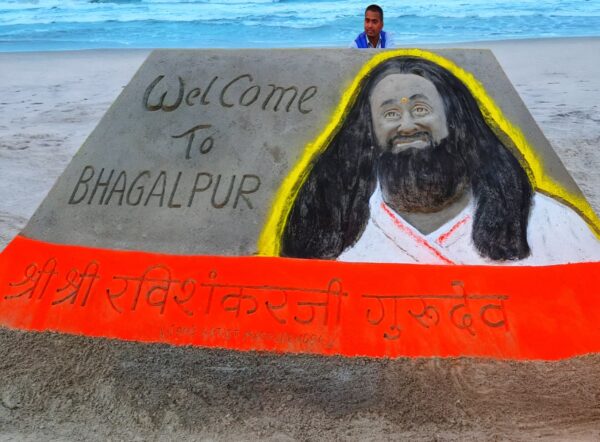 WelCome
To
BHAGALPUR
श्री श्री रविशंकरजी गुरूदेव